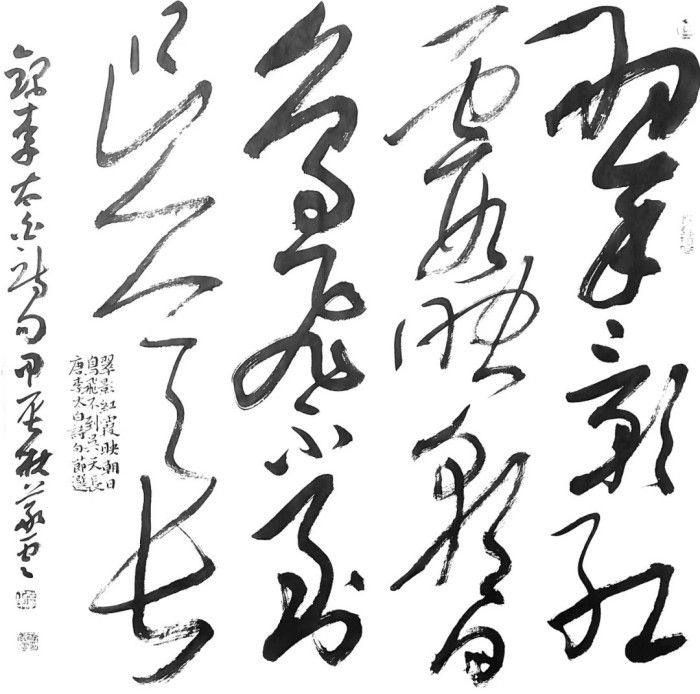 翠影紅
霞映朝日
鳥飛不到
吳天長
翠影紅霞映朝日
鳥飛不到吳天長
唐李太白詩句節選
錄李太白詩句甲辰秋